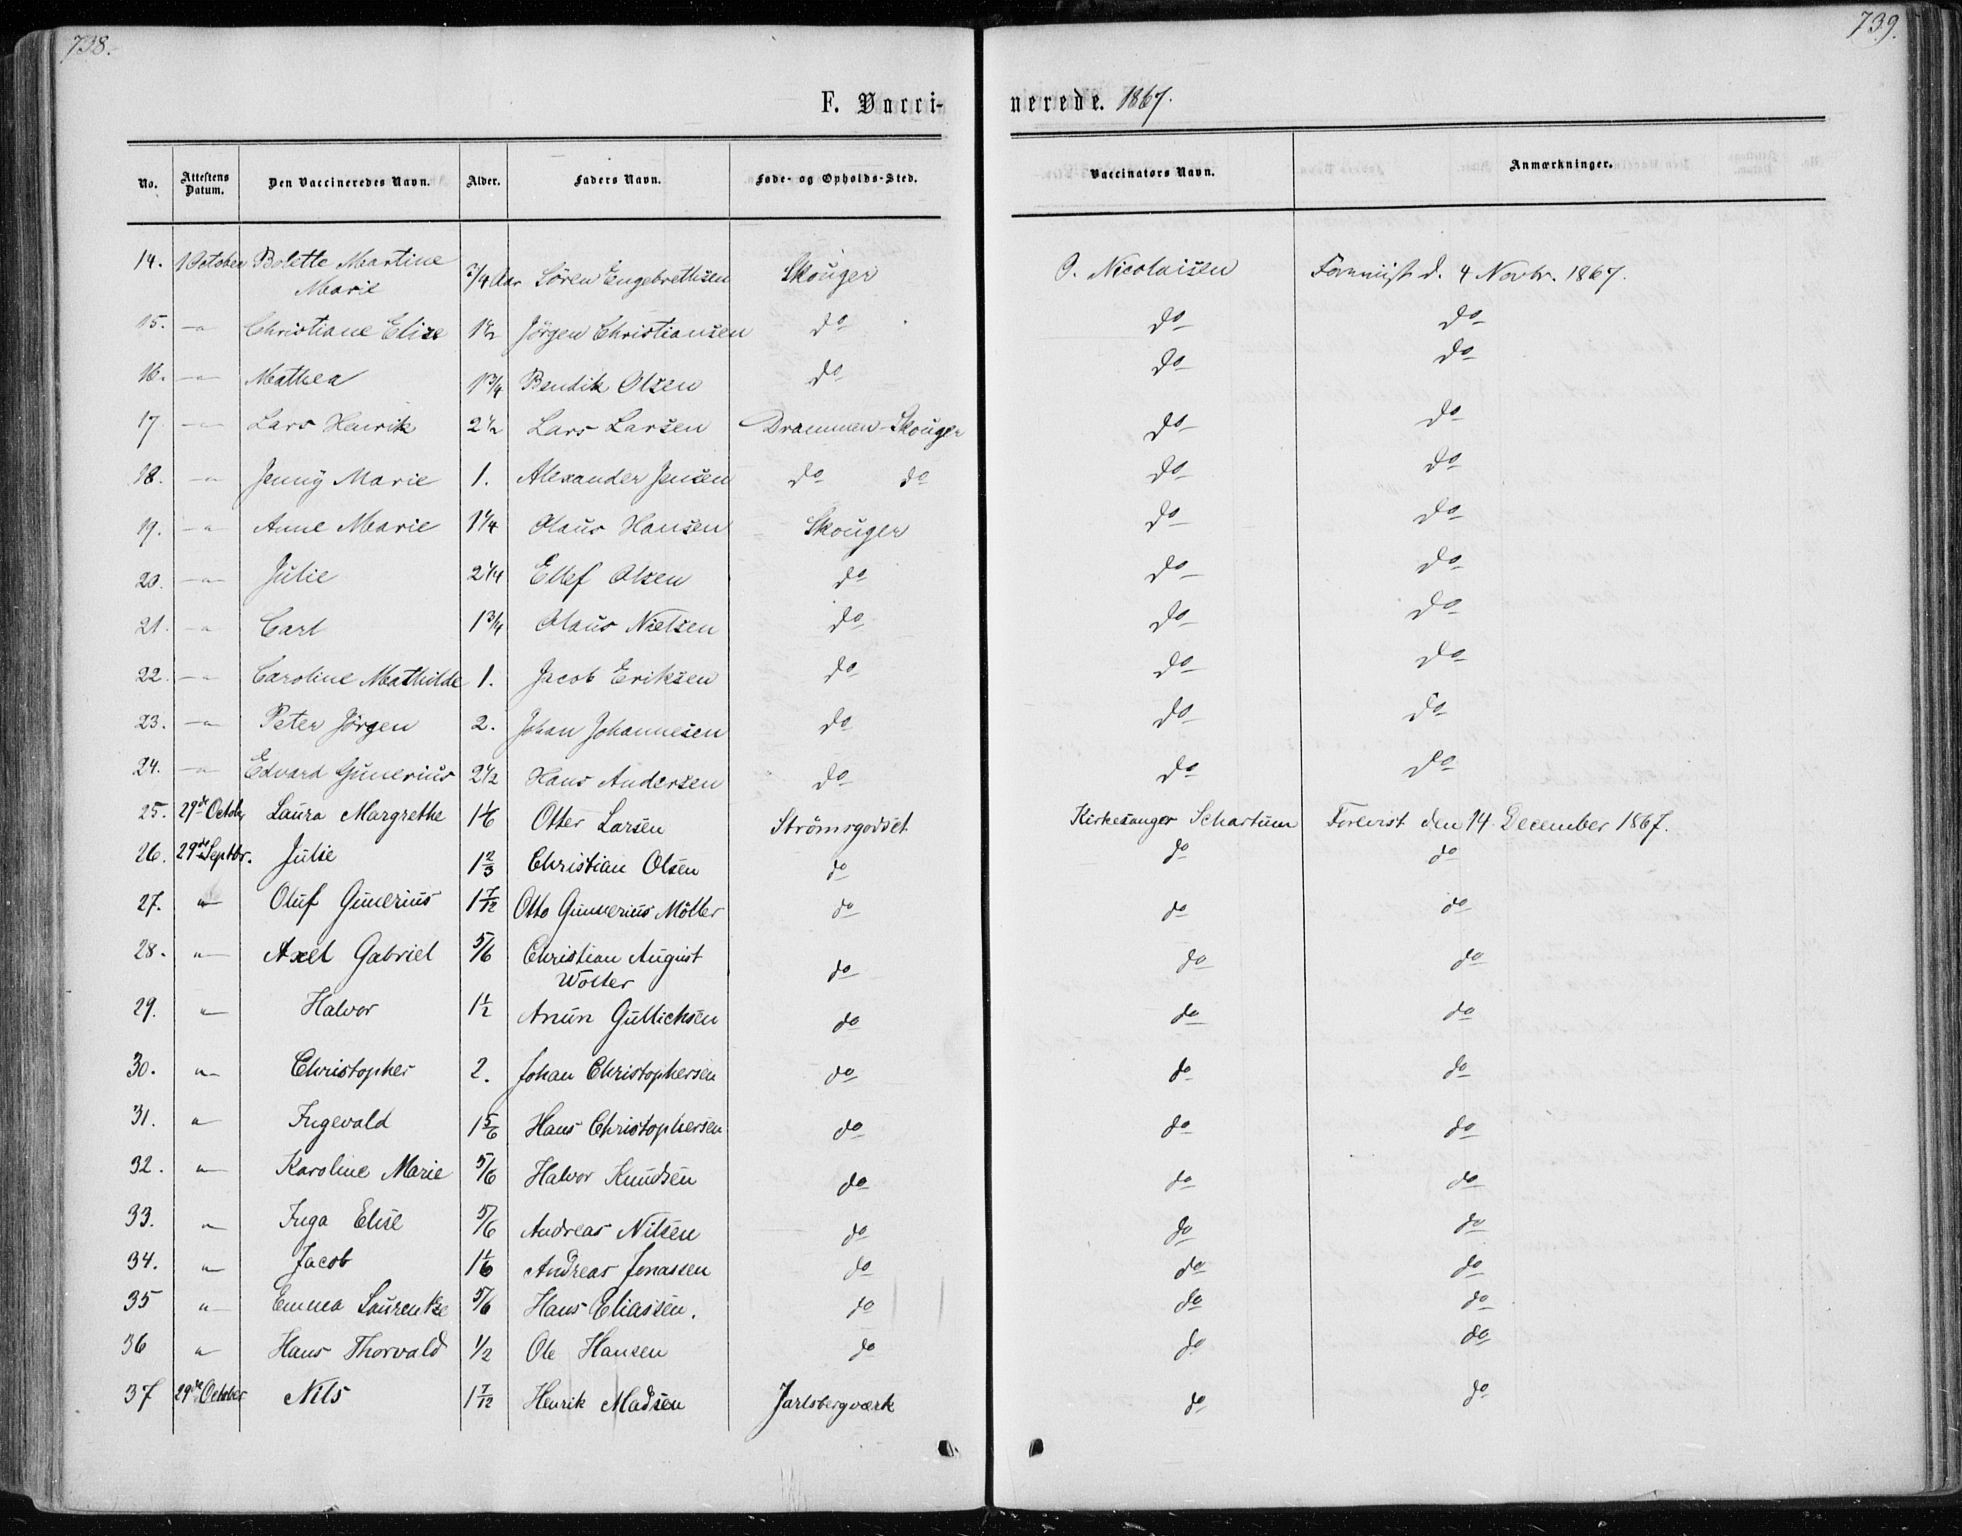 738.
739.
F. Vacci-
nerede. 1867.
No. Attestens Datum. Den Vaccineredes Navn. Alder. Faders Navn. Føde- og Opholds-Sted. Vaccinators Navn. Anmærkninger.
14. 1 October Bolette Martine Marie 3/4 Aar Søren Engebrethsen Skouger O. Nicolaisen Foreviist d. 4 Novbr. 1867.
15. –"– Christiane Elise 1 1/2 Jörgen Christiansen do do do
16. –"– Mathea 1 3/4 Bendik Olsen do do do
17. –"– Lars Henrik 2 1/2 Lars Larsen Drammen-Skouger do do
18. –"– Jenny Marie 1. Alexander Jensen do do do do
19. –"– Anne Marie 1 1/4 Olaus Hansen Skouger do do
20. –"– Julie 2 1/4 Ellef Olsen do do do
21. –"– Carl 1 3/4 Olaus Nielsen do do do
22. –"– Caroline Mathilde 1. Jacob Eriksen do do do
23. –"– Peter Jörgen 2. Johan Johannesen do do do
24. –"– Edvard Gunerius 2 1/2 Hans Andersen do do do
25. 29de October Laura Margrethe 1 1/6 Otter Larsen Strömsgodset Kirkesanger Schartum Forevist den 14 December 1867.
26. 29de Septbr. Julie 1 2/3 Christian Olsen do do do
27. " Oluf Gunerius 1 7/12 Otto Gunnerius Möller do do do
28. " Axel Gabriel 5/6 Christian August Wölter do do do
29. " Halvor 1 1/2 Anun Gullichsen do do do
30. " Christopher 2. Johan Christophersen do do do
31. " Ingevald 1 5/6 Hans Christophersen do do do
32. " Karoline Marie 5/6 Halvor Knudsen do do do
33. " Inga Elise 5/6 Andreas Nilsen do do do
34. " Jacob 1 1/6 Andreas Jonassen do do do
35 " Emma Laurentze 5/6 Hans Eliassen. do do do
36 " Hans Thorvald 1/2 Ole Hansen do do do
37 29de October Nils 1 7/12 Henrik Madsen Jarlsbergværk do do